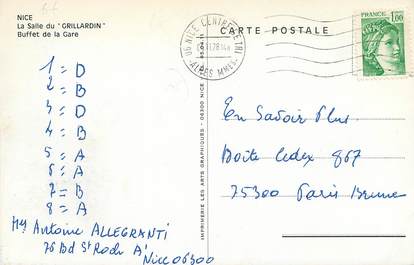 NICE
La Salle du "GRILLARDIN"
Buffet de la Gare
CARTE POSTALE
06 NICE CENTRE TRI
ALPES MMES
FRANCE
1,00
1 = D
2 = B
3 = D
4 = B
5 = A
6 = A
7 = B
8 = A
Mr Antoine ALLEGRANTI
76 Bd St Roch A
Nice 06300
IMPRIMERIE LES ARTS GRAPHIQUES - 06300 NICE
En Savoir Plus
Boîte Cedex 867
75300 Paris Brune